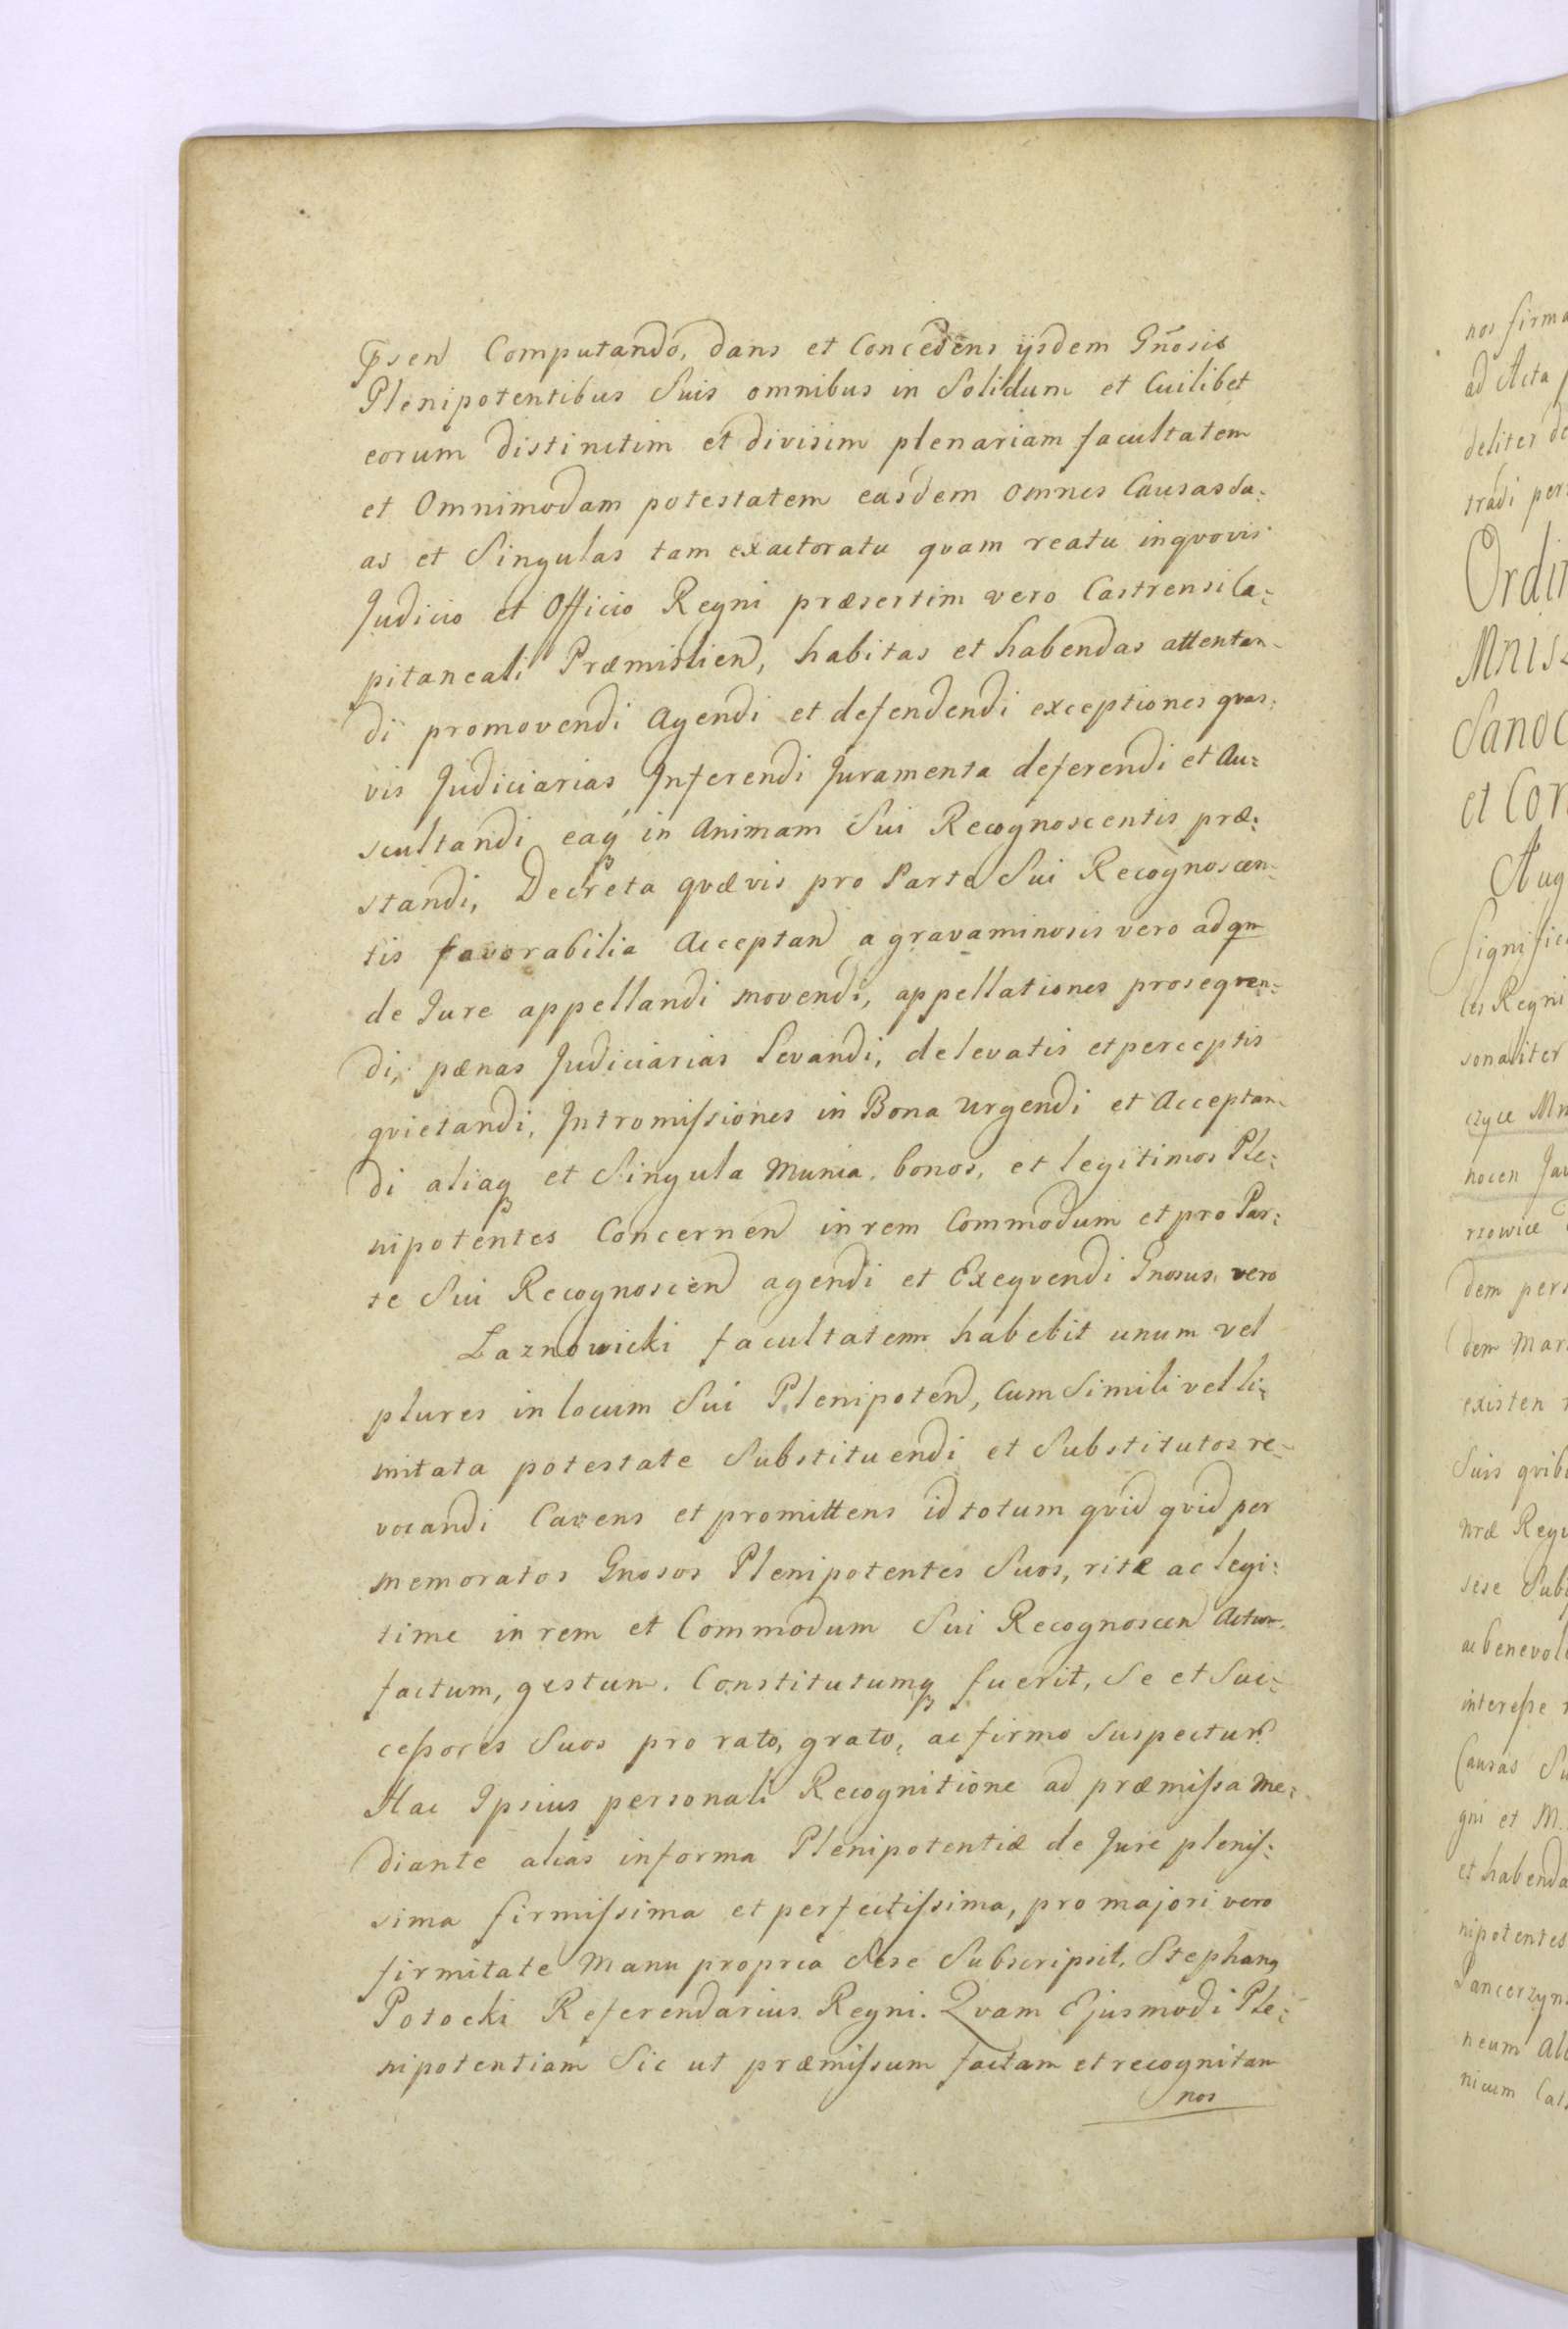 Pnsen Computando, dans et Concedens ijsdem Gn̄osis
Plenipotentibus Suis omnibus in Solidum et Cuilibet
eorum distinctim et divisim plenariam facultatem
et Omnimodam potestatem easdem omnes Causas Su:
as et Singulas tam exactoratu quam reatu inqvovis
Judicio et Officio Regni præsertim vero Castrensi Ca:
pitaneali Præmislien, habitas et habendas attentan-
di promovendi Agendi et defendendi exceptiones qvas:
vis Judiciarias Inferendi Juramenta deferendi et Au:
scultandi eaq in Animam Sui Recognoscentis præ:
standi, Decreta qvævis pro Parte Sui Recognoscen-
tis favorabilia Acceptan a gravaminosis vero ad qm
de Jure appellandi movendi, appellationes proseqven:
di, pænas Judiciarias Levandi, de levatis et perceptis
qvietandi, Intromissiones in Bona Urgendi et Acceptan-
di aliaq et Singula Munia, bonos, et legitimos Ple:
nipotentes Concernen in rem Commodum et pro Par:
te Sui Recognoscen agendi et Exeqvendi Gnosus, vero
Łaznowicki facultatem habebit unum vel
plures in locum Sui Plenipoten, Cum Simili vel li:
mitata potestate Substituendi et Substitutos re-
vocandi Cavens et promittens id totum qvid qvid per
memoratos Gnosos Plenipotentes Suos, rite ac legi:
time in rem et Commodum Sui Recognoscen Actum
factum, gestum. Constitutumq fuerit, Se et Suc:
cessores Suos pro rato, grato, ac firmo Suspectur
Hac Ipsius personali Recognitione ad præmissa me:
diante alias in forma Plenipotentiæ de Jure plenis:
sima firmissima et perfectissima, pro majori vero
firmitate Manu propria Sese Subscripsit, Stephang
Potocki Referendarius Regni. Qvam Ejusmodi Ple:
nipotentiam Sic ut præmissum factam et recognitam
nos
nos firma
ad Acta
deliter de
tradi per
Ordi
Mnis
Sanoc
et Cor
Aug
Signific
les Regni
sonaliter
czyce Mn
nocen Jav
rsowice
dem pers
dem Mar
existen
Suis qvib
nræ Reg
sese Sub
ac benevol
interesse
Causas Su
gni et M.
et habenda
nipotentes
Pancerzyn
neum Al
nicum Cas